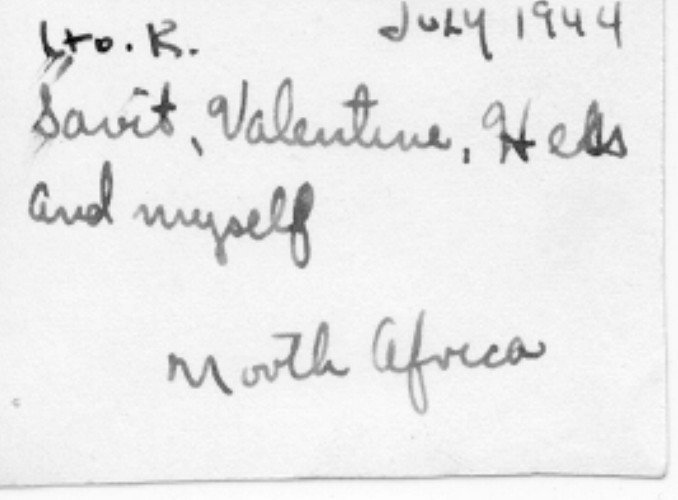 L to R. July 1944
Savit, Valentine, Hess
and myself
North Africa